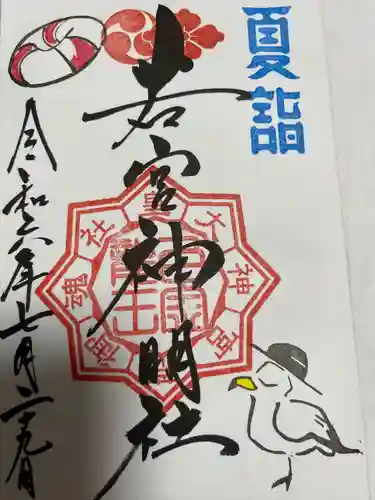 夏詣
若宮神明社
令和六年七月二十九日